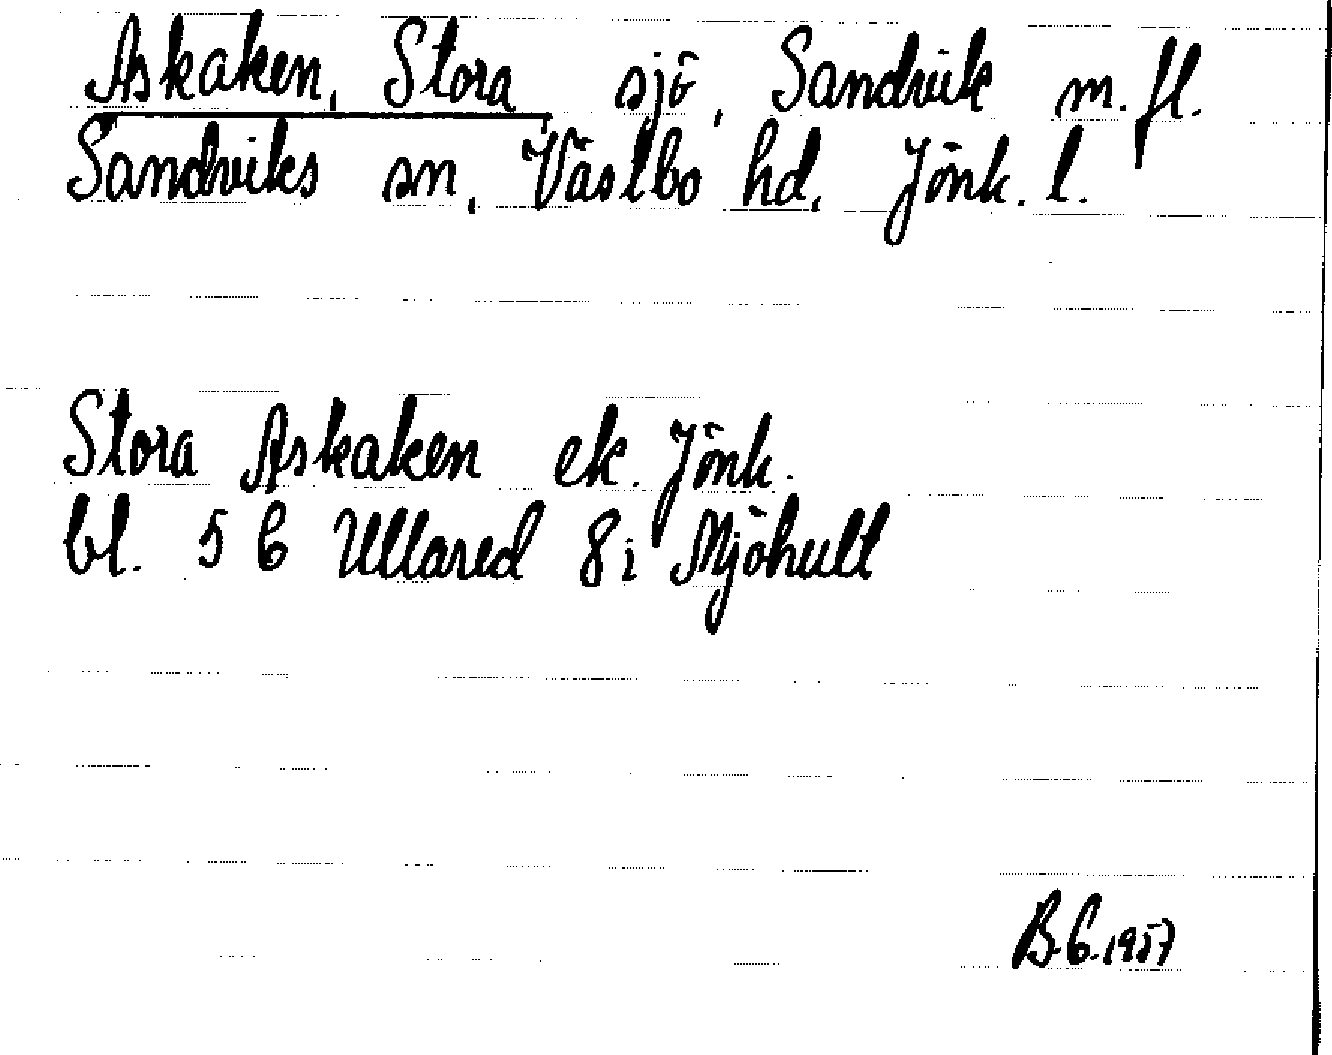 Askaken, Stora sjö, Sandvik m. fl.
Sandviks sn, Västbo hd, Jönk. l.
Stora Askaken ek. Jönk.
bl. 5 C Ullared 8 i Mjöhult
B.G. 1957